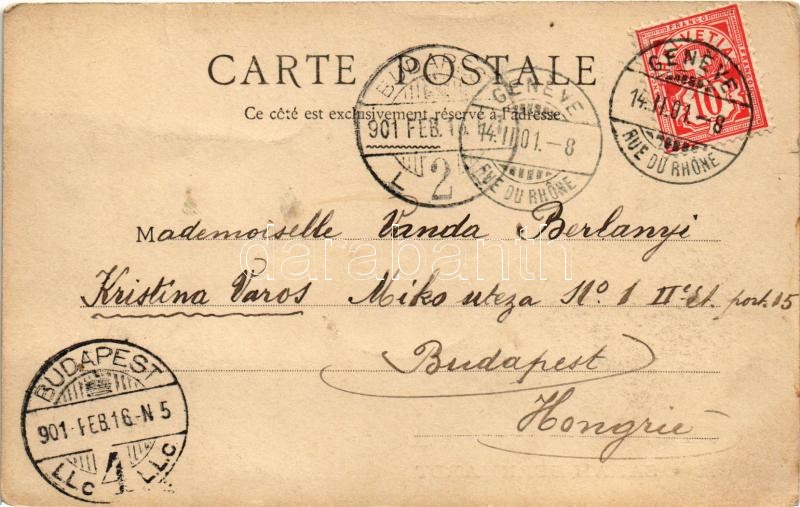 CARTE POSTALE
Ce côté est exclusivement réservé à l'adresse.
FRANCO
HELVETIA
10
GENÈVE
14.II.01.-8
RUE DU RHÔNE
GENÈVE
14.II.01.-8
RUE DU RHÔNE
901 FEB.
L 2
Mademoiselle Vanda Berlanyi
Kristina Varos Miko uteza No. 1 IIe Et. port. 15
Budapest
Hongrie
BUDAPEST
901-FEB.16.-N 5
LLC 4 LLC
darabanth